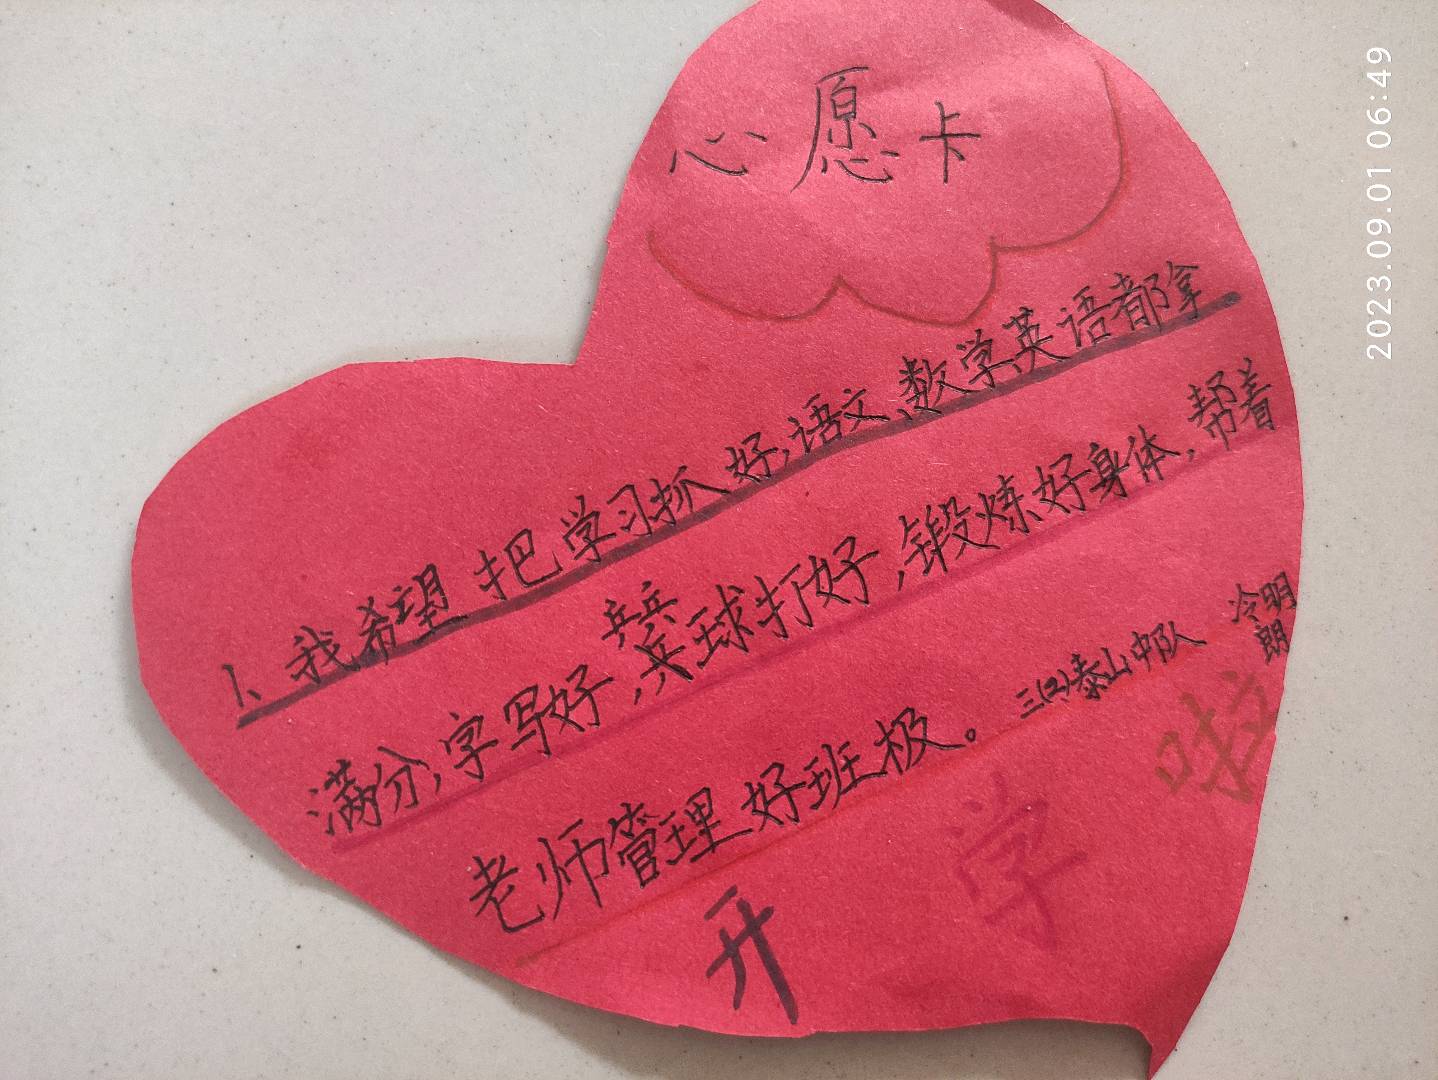 心愿卡
1、我希望把学习抓好,语文、数学、英语都拿
满分,字写好,乒乓球打好,锻炼好身体,帮着
老师管理好班极。
三(2)泰山中队
冷明
朗
开学啦
2023.09.01 06:49